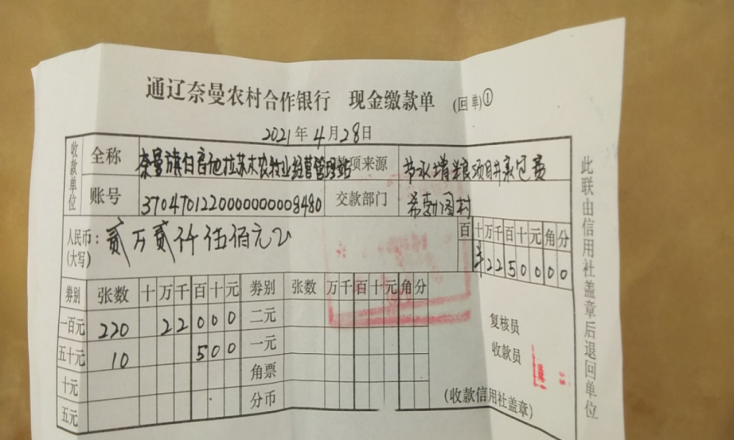 通辽奈曼农村合作银行 现金缴款单 (回单)①
2021年4月28日
收款单位 全称 奈曼旗白音他拉苏木农牧业经营管理站 款项来源 节水增粮项目井承包费
账号 3704701220000000008480 交款部门 希勃图村
人民币:(大写) 贰万贰仟伍佰元 百十万千百十元角分
¥2250000
券别 张数 十万千百十元 券别 张数 万千百十元角分
一百元 220 22000 二元
五十元 10 500 一元
十元 角票
五元 分币
复核员
收款员
(收款信用社盖章)
此联由信用社盖章后退回单位